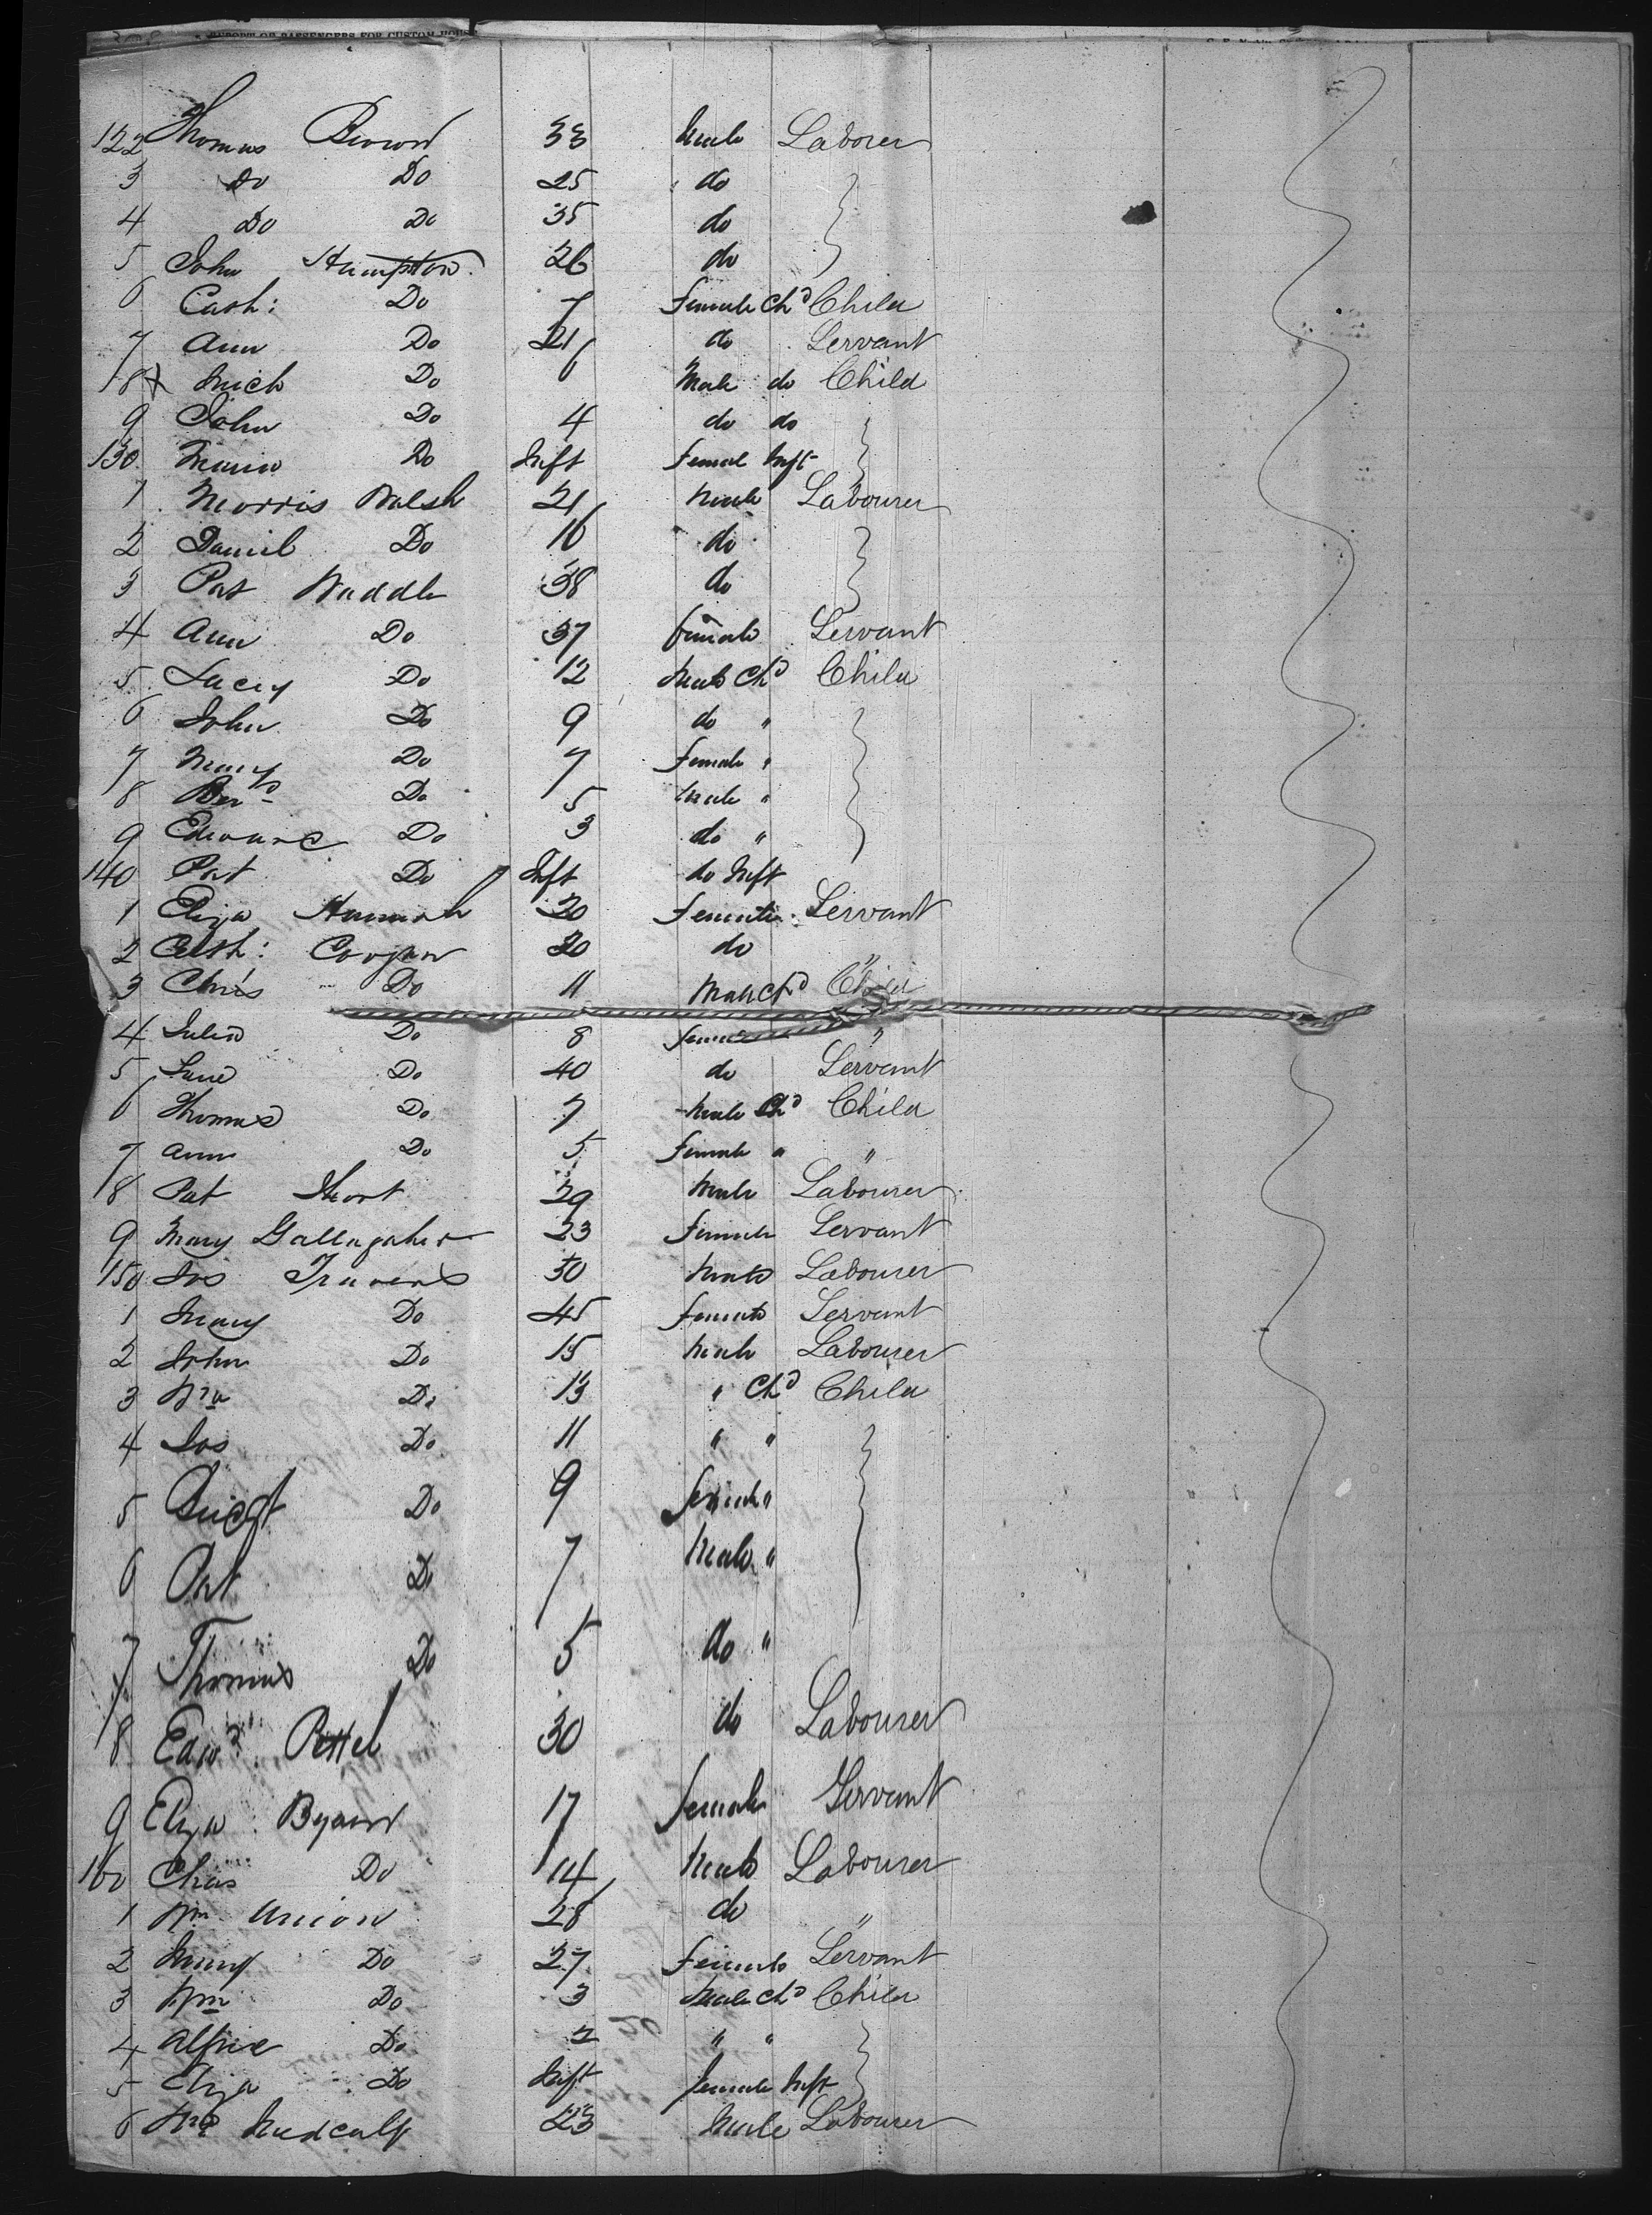 REPORT OF PASSENGERS FOR CUSTOM HOUSE
122 Thomas Brown 33 Male Laborer
3 Do Do 25 do
4 Do Do 35 do
5 John Hampton 26 do
6 Cath: Do 7 Female Chd Child
7 Ann Do 21 do Servant
8 Mich Do 6 Male do Child
9 John Do 4 do do
130 Maria Do Inft Femal Inft
1 Morris Walsh 21 Male Labourer
2 Daniel Do 16 do
3 Pat Waddle 38 do
4 Ann Do 37 female Servant
5 Lacey Do 12 Male Chd Child
6 John Do 9 do "
7 Mary Do 7 Female "
8 Bend Do 5 Male "
9 Edward Do 3 do "
140 Pat Do Inft do Inft
1 Eliza Hannah 20 Female Servant
2 Cath: Coogan 20 do "
3 Chris Do 11 Male Chd Child
4 Julia Do 8 "
5 Jane Do 40 do Servant
6 Thomas Do 7 Male Chd Child
7 Ann Do 5 Female " "
8 Pat Short 29 Male Labourer
9 Mary Gallagaher 23 Female Servant
150 Jos Travers 30 Male Labourer
1 Mary Do 45 Female Servant
2 John Do 15 Male Labourer
3 Wm Do 13 " Chd Child
4 Jos Do 11 " "
5 Bridgt Do 9 female "
6 Pat Do 7 Male "
7 Thomas Do 5 do "
8 Edwd Pettel 30 do Labourer
9 Eliza Byand 17 female Servant
160 Chas Do 14 Male Labourer
1 Wm Union 28 do "
2 Mary Do 27 Female Servant
3 Wm Do 3 Male Chd Child
4 Alfrie Do 2 " "
5 Eliza Do Inft female Inft
6 Wm Medcalf 23 Male Labourer